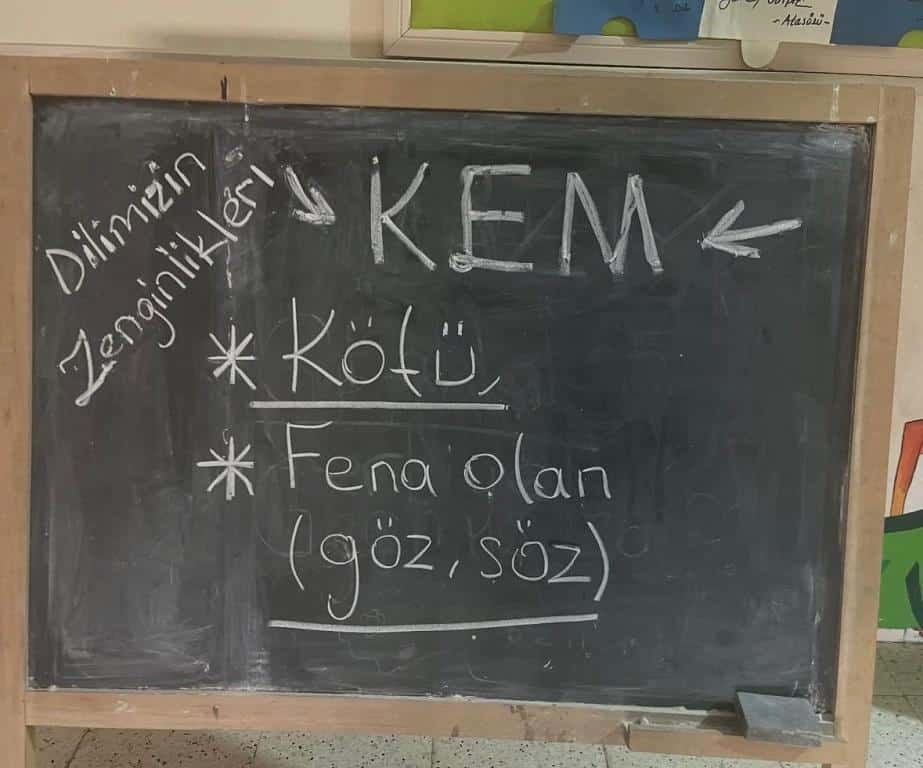 ~Atasözü~
Dilimizin
Zenginlikleri
→ KEM ←
* Kötü,
* Fena olan
(göz, söz)